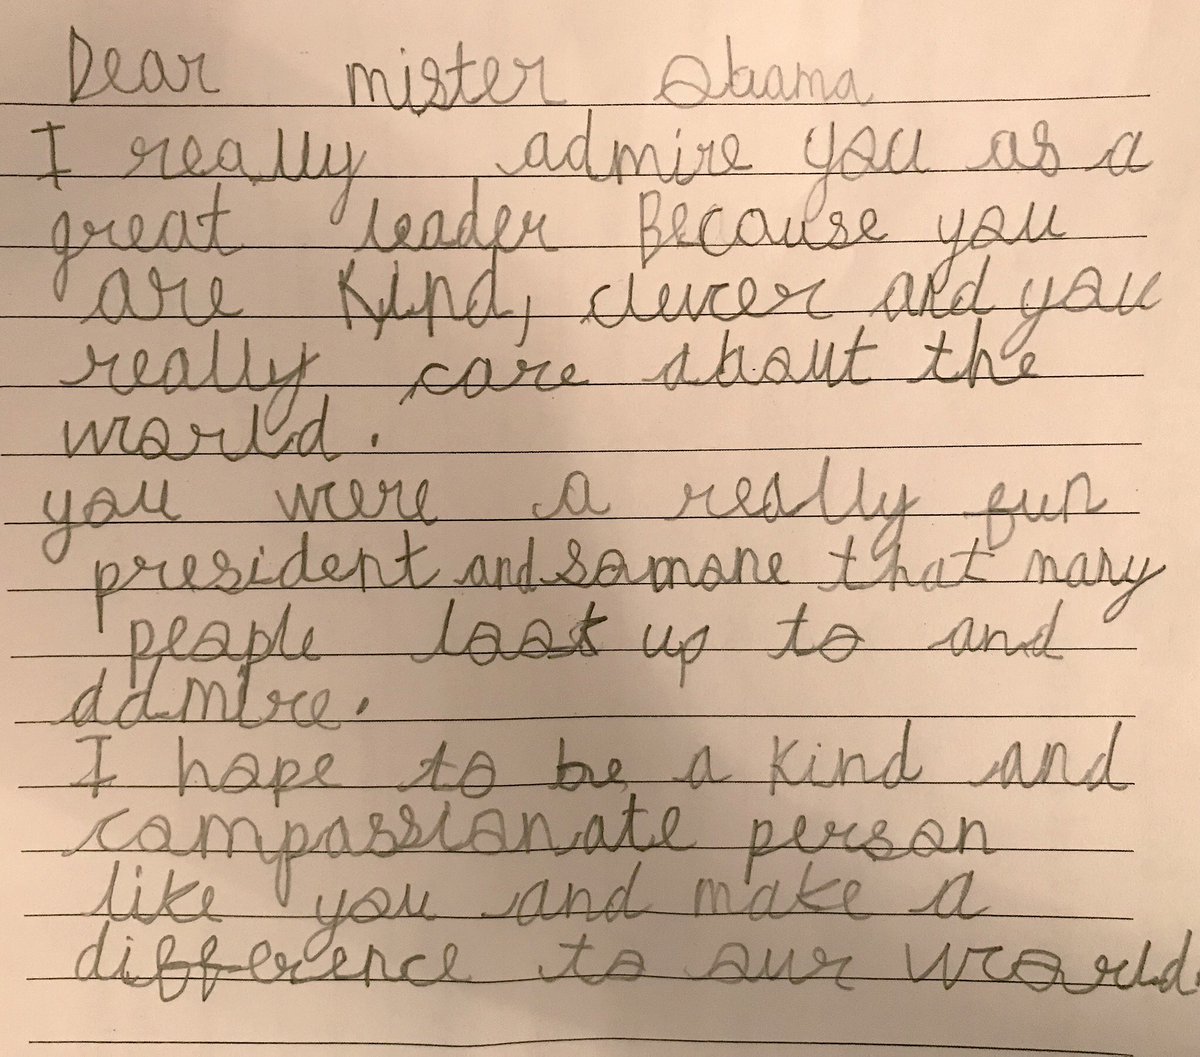 Dear mister Obama
I really admire you as a
great leader Because you
are kind, clever and you
really care about the
world.
you were a really fun
president and somone that many
people look up to and
admire.
I hope to be a kind and
compassionate person
like you and make a
difference to our world.